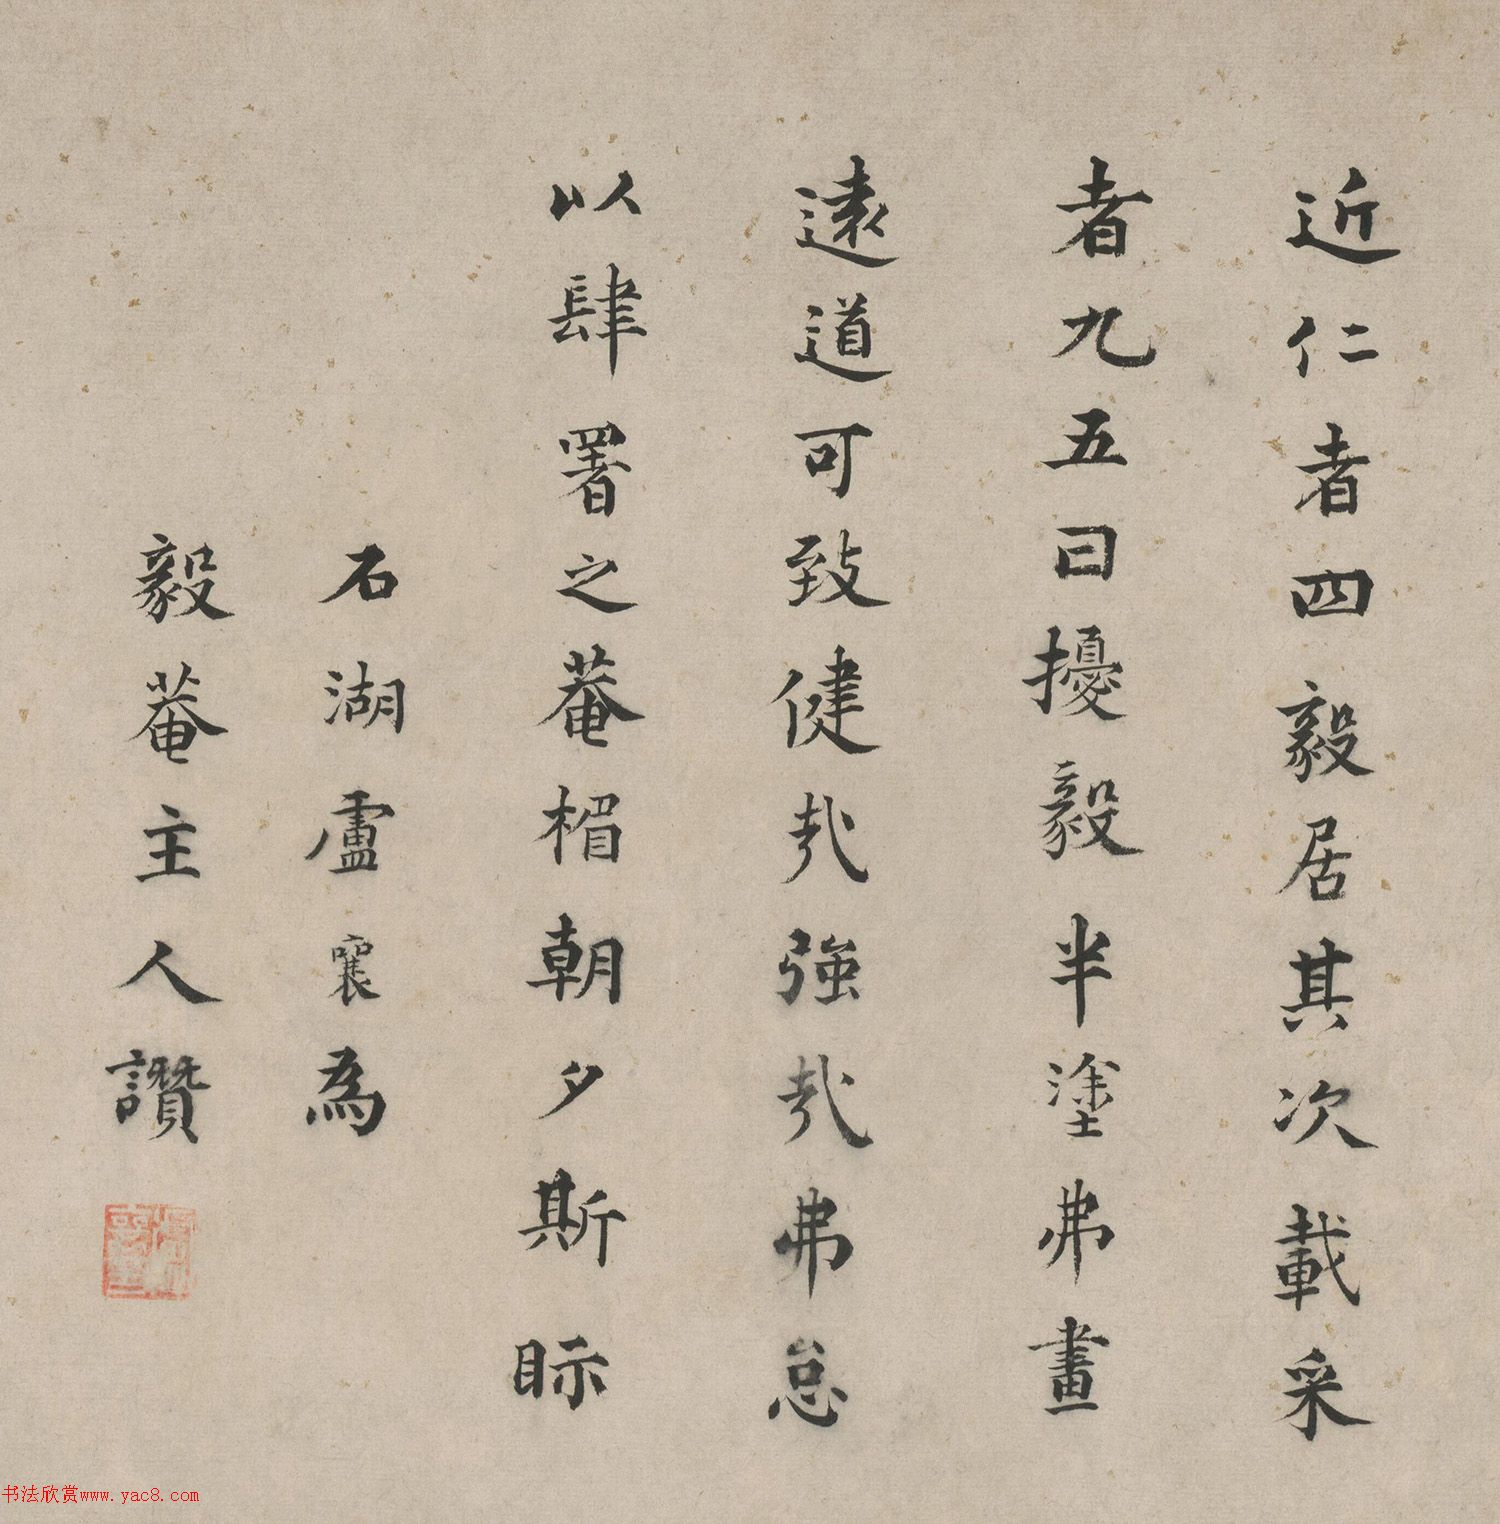 近仁者四毅居其次載采
者九五曰擾毅半塗弗畫
遠道可致健㢤強㢤弗怠
以肆署之菴楣朝夕斯眎
石湖盧襄為
毅菴主人讚
书法欣赏www.yac8.com